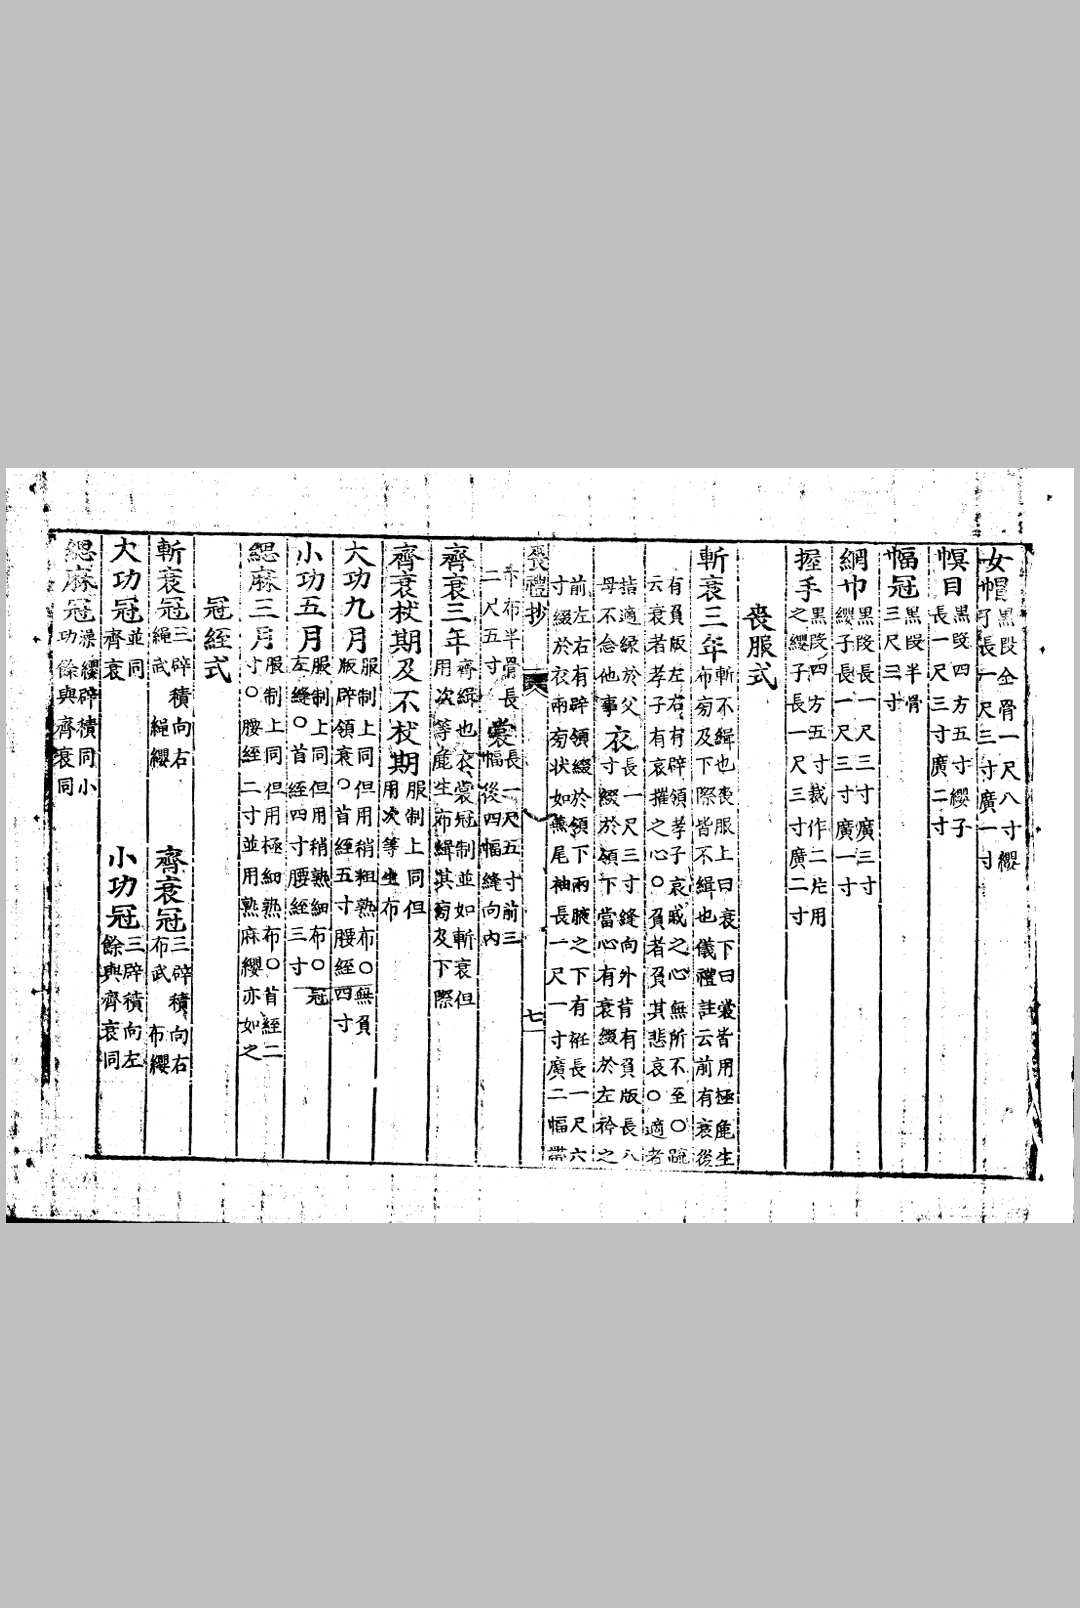 女帽 黑段全骨一尺八寸纓子長一尺三寸廣一寸
幎目 黑段四方五寸纓子長一尺三寸廣二寸
幅冠 黑段半骨三尺三寸
網巾 黑段長一尺三寸廣三寸纓子長一尺三寸廣一寸
握手 黑段四方五寸裁作二片用之纓子長一尺三寸廣二寸
喪服式
斬衰三年 斬不緝也喪服上曰衰下曰裳皆用極麁生布旁及下際皆不緝也儀禮註云前有衰後
有負版左右有辟領孝子哀戚之心無所不至○疏云衰者孝子有哀摧之心○負者負其悲哀○適者
指適緣於父母不念他事 衣 長一尺三寸縫向外背有負版長八寸綴於領下當心有衰綴於左衿之
前左右有辟領綴於領下兩腋之下有衽長一尺六寸綴於衣兩旁狀如鷰尾袖長一尺一寸廣二幅帶
喪禮抄 七
布半骨長二尺五寸 裳 長二尺五寸前三幅後四幅縫向內
齊衰三年 齊緝也衣裳冠制並如斬衰但用次等麁生布緝其旁及下際
齊衰杖期及不杖期 服制上同但用次等生布
大功九月 服制上同但用稍粗熟布○無負版辟領衰○首絰五寸腰絰四寸
小功五月 服制上同但用稍熟細布○冠左縫○首絰四寸腰絰三寸
緦麻三月 服制上同但用極細熟布○首絰二寸○腰絰二寸並用熟麻纓亦如之
冠絰式
斬衰冠 三辟積向右繩武繩纓 齊衰冠 三辟積向右布武布纓
大功冠 並同齊衰 小功冠 三辟積向左餘與齊衰同
緦麻冠 澡纓辟積同小功餘與齊衰同